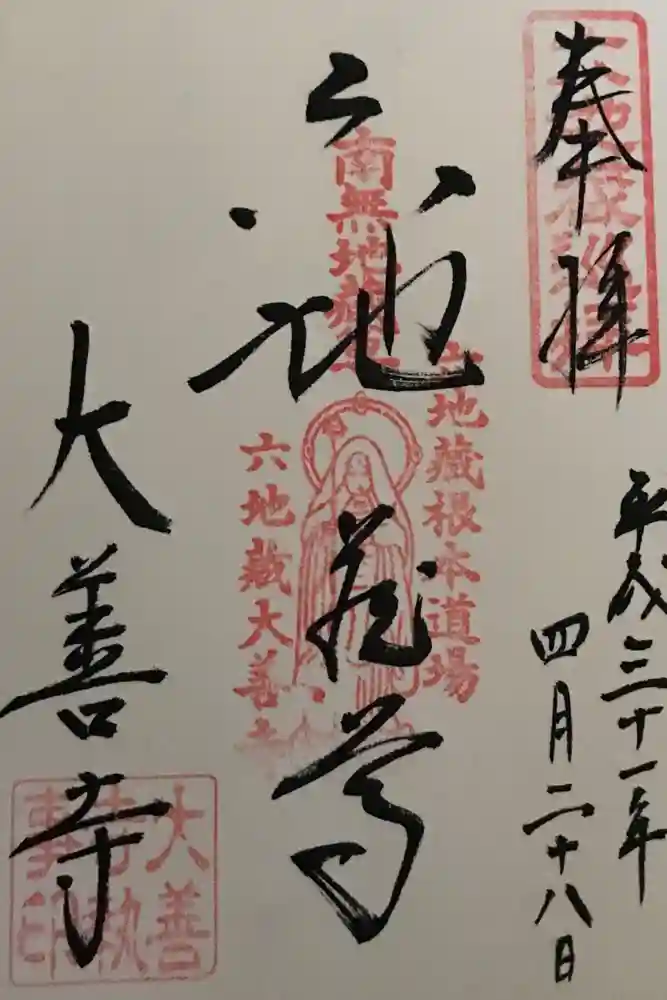 奉拝
平成三十一年
四月二十八日
六地蔵尊
大善寺
南無地藏
地藏根本道場
六地藏大善寺
大善
寺執
事印